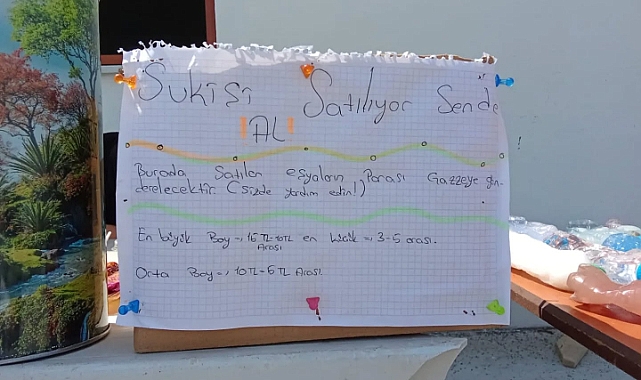 Sukişi Satılıyor Sende
!AL!
Burada Satılan eşyaların Parası Gazzeye gön-
derelecektir. (sizde yardım edin!)
En büyük Boy =, 15 TL-10TL Arası en küçük =, 3-5 arası.
Orta Boy =, 10 TL-5 TL Arası